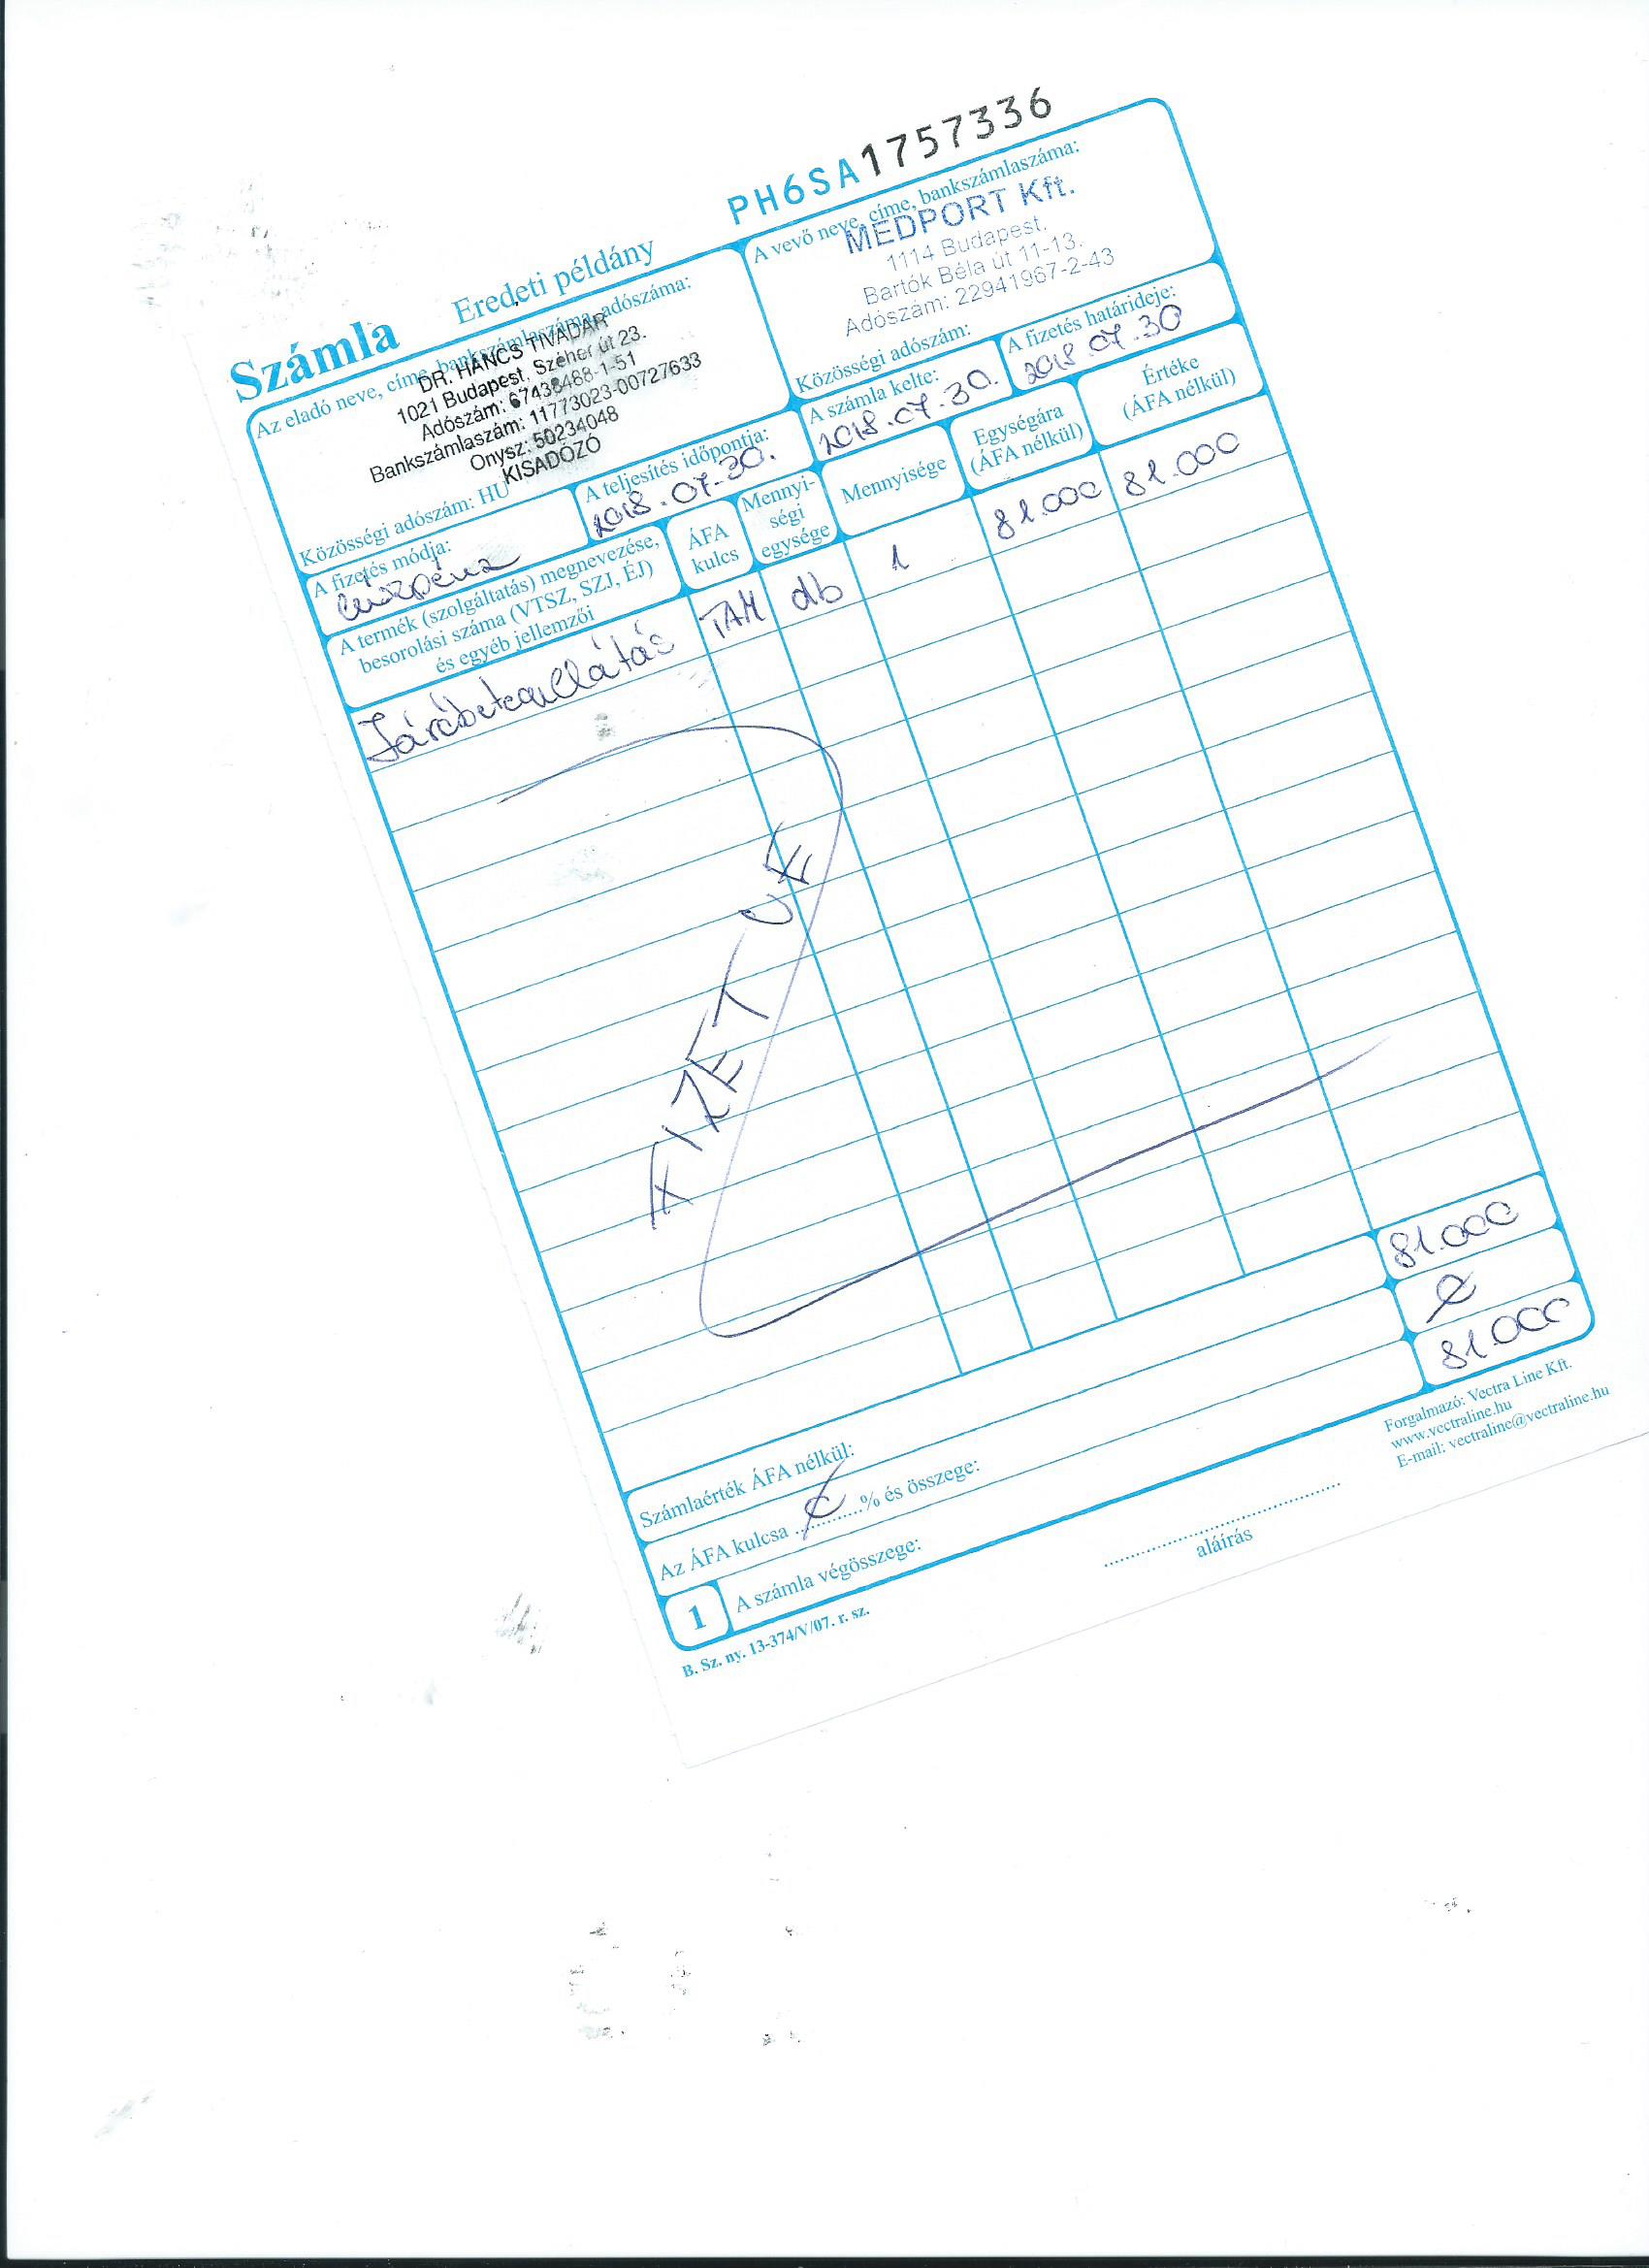 PH6SA1757336
Számla Eredeti példány
Az eladó neve, címe, bankszámlaszáma, adószáma:
DR. HANCS TIVADAR
1021 Budapest, Széher út 23.
Adószám: 67438488-1-51
Bankszámlaszám: 11773023-00727633
Onysz: 50234048
KISADÓZÓ
Közösségi adószám: HU
A vevő neve, címe, bankszámlaszáma:
MEDPORT Kft.
1114 Budapest,
Bartók Béla út 11-13.
Adószám: 22941967-2-43
Közösségi adószám:
A fizetés módja:
készpénz
A teljesítés időpontja:
2018.07.30.
A számla kelte:
2018.07.30.
A fizetés határideje:
2018.07.30
A termék (szolgáltatás) megnevezése,
besorolási száma (VTSZ, SZJ, ÉJ)
és egyéb jellemzői
ÁFA
kulcs
Mennyi-
ségi
egysége
Mennyisége
Egységára
(ÁFA nélkül)
Értéke
(ÁFA nélkül)
Járóbetegellátás TAM db 1 81.000 81.000
FIZETVE
Számlaérték ÁFA nélkül: 81.000
Az ÁFA kulcsa ............% és összege:
1 A számla végösszege: 81.000
B. Sz. ny. 13-374/V/07. r. sz.
aláírás
Forgalmazó: Vectra Line Kft.
www.vectraline.hu
E-mail: vectraline@vectraline.hu